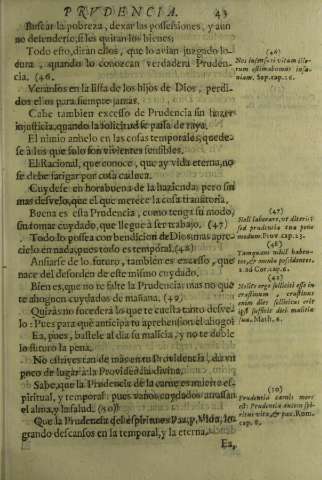 PRVDENCIA. 43
Buscar la pobreza, dexar las possessiones, y aun
no defenderse, si les quitan los bienes;
Todo esto, dirán ellos, que lo avian juzgado lo-
cura, quando lo conozcan verdadera Pruden-
cia. (46.
Veranlos en la lista de los hijos de Dios, perdi-
dos ellos para siempre jamas.
Cabe tambien excesso de Prudencia sin hazer
injusticia, quando la solicitud se passa de raya.
El nimio anhelo en las cosas temporales, quede-
se à los que solo son vivientes sensibles.
El Racional, que conoce, que ay vida eterna, no
se debe fatigar por cosa caduca.
Cuydese en horabuena de la hazienda; pero sin
mas desvelo, que el que merece la cosa transitoria.
Buena es esta Prudencia, como tenga su modo,
sin tomar cuydado, que llegue à ser trabajo. (47)
Todo lo possea con bendicion de Dios; mas apre-
cielo en nada, pues todo es temporal. (48)
Ansiarse de lo futuro, tambien es excesso, que
nace del desorden de este mismo cuydado.
Bien es, que no te falte la Prudencia; mas no que
te ahoguen cuydados de mañana. (49)
Quizás no sucederà lo que te cuesta tanto desve-
lo: Pues para què anticipa tu aprehension el ahogo?
Ea, pues, bastele al dia su malicia, y no te doble
lo futuro la pena.
No estrives tan de mas en tu Providencia, dà vn
poco de lugar à la Providencia divina.
Sabe, que la Prudencia de la carne es muerte es-
piritual, y temporal: pues vanos cuydados arrastran
el alma, y la salud. (50)
Que la Prudencia del espiritu es Paz, y Vida, lo-
grando descansos en la temporal, y la eterna.
Ea,
(46)
Nos insensati vitam illo-
rum estimabamus insa-
niam. Sap. cap. 5.
(47)
Noli laborare, ut diteris:
sed prudentia tua pone
modum. Prov. cap. 23.
(48)
Tamquam nihil haben-
tes, & omnia possidentes.
2. ad Cor. cap. 6.
Nolite ergo solliciti esse in
crastinum, crastinus
enim dies sollicitus erit
ipsi sufficit diei malitia
sua. Math. 6.
(50)
Prudentia carnis mors
est: Prudentia autem spi-
ritus vita, & pax. Rom.
cap. 8.